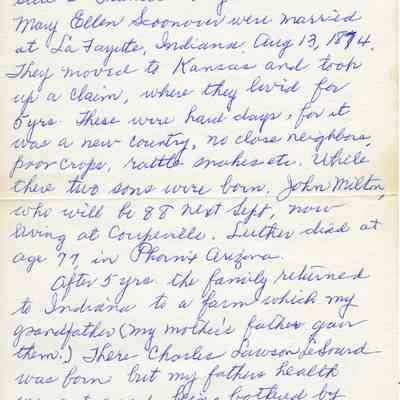 Mary Ellen Scoonover were married
at La Fayette, Indiana, Aug 13, 1874.
They moved to Kansas and took
up a claim, where they liv'd for
5 yrs. These were hard days, for it
was a new country, no close neighbors,
poor crops, rattle snakes etc. While
there two sons were born. John Milton,
who will be 88 next Sept, now
living at Coupeville. Luther died at
age 77 in Phoenix Arizona.
After 5 yrs. the family returned
to Indiana to a farm which my
grandfather (my mother's father gave
them.) There Charles Lawson LeSourd
was born but my fathers health
being bothered by